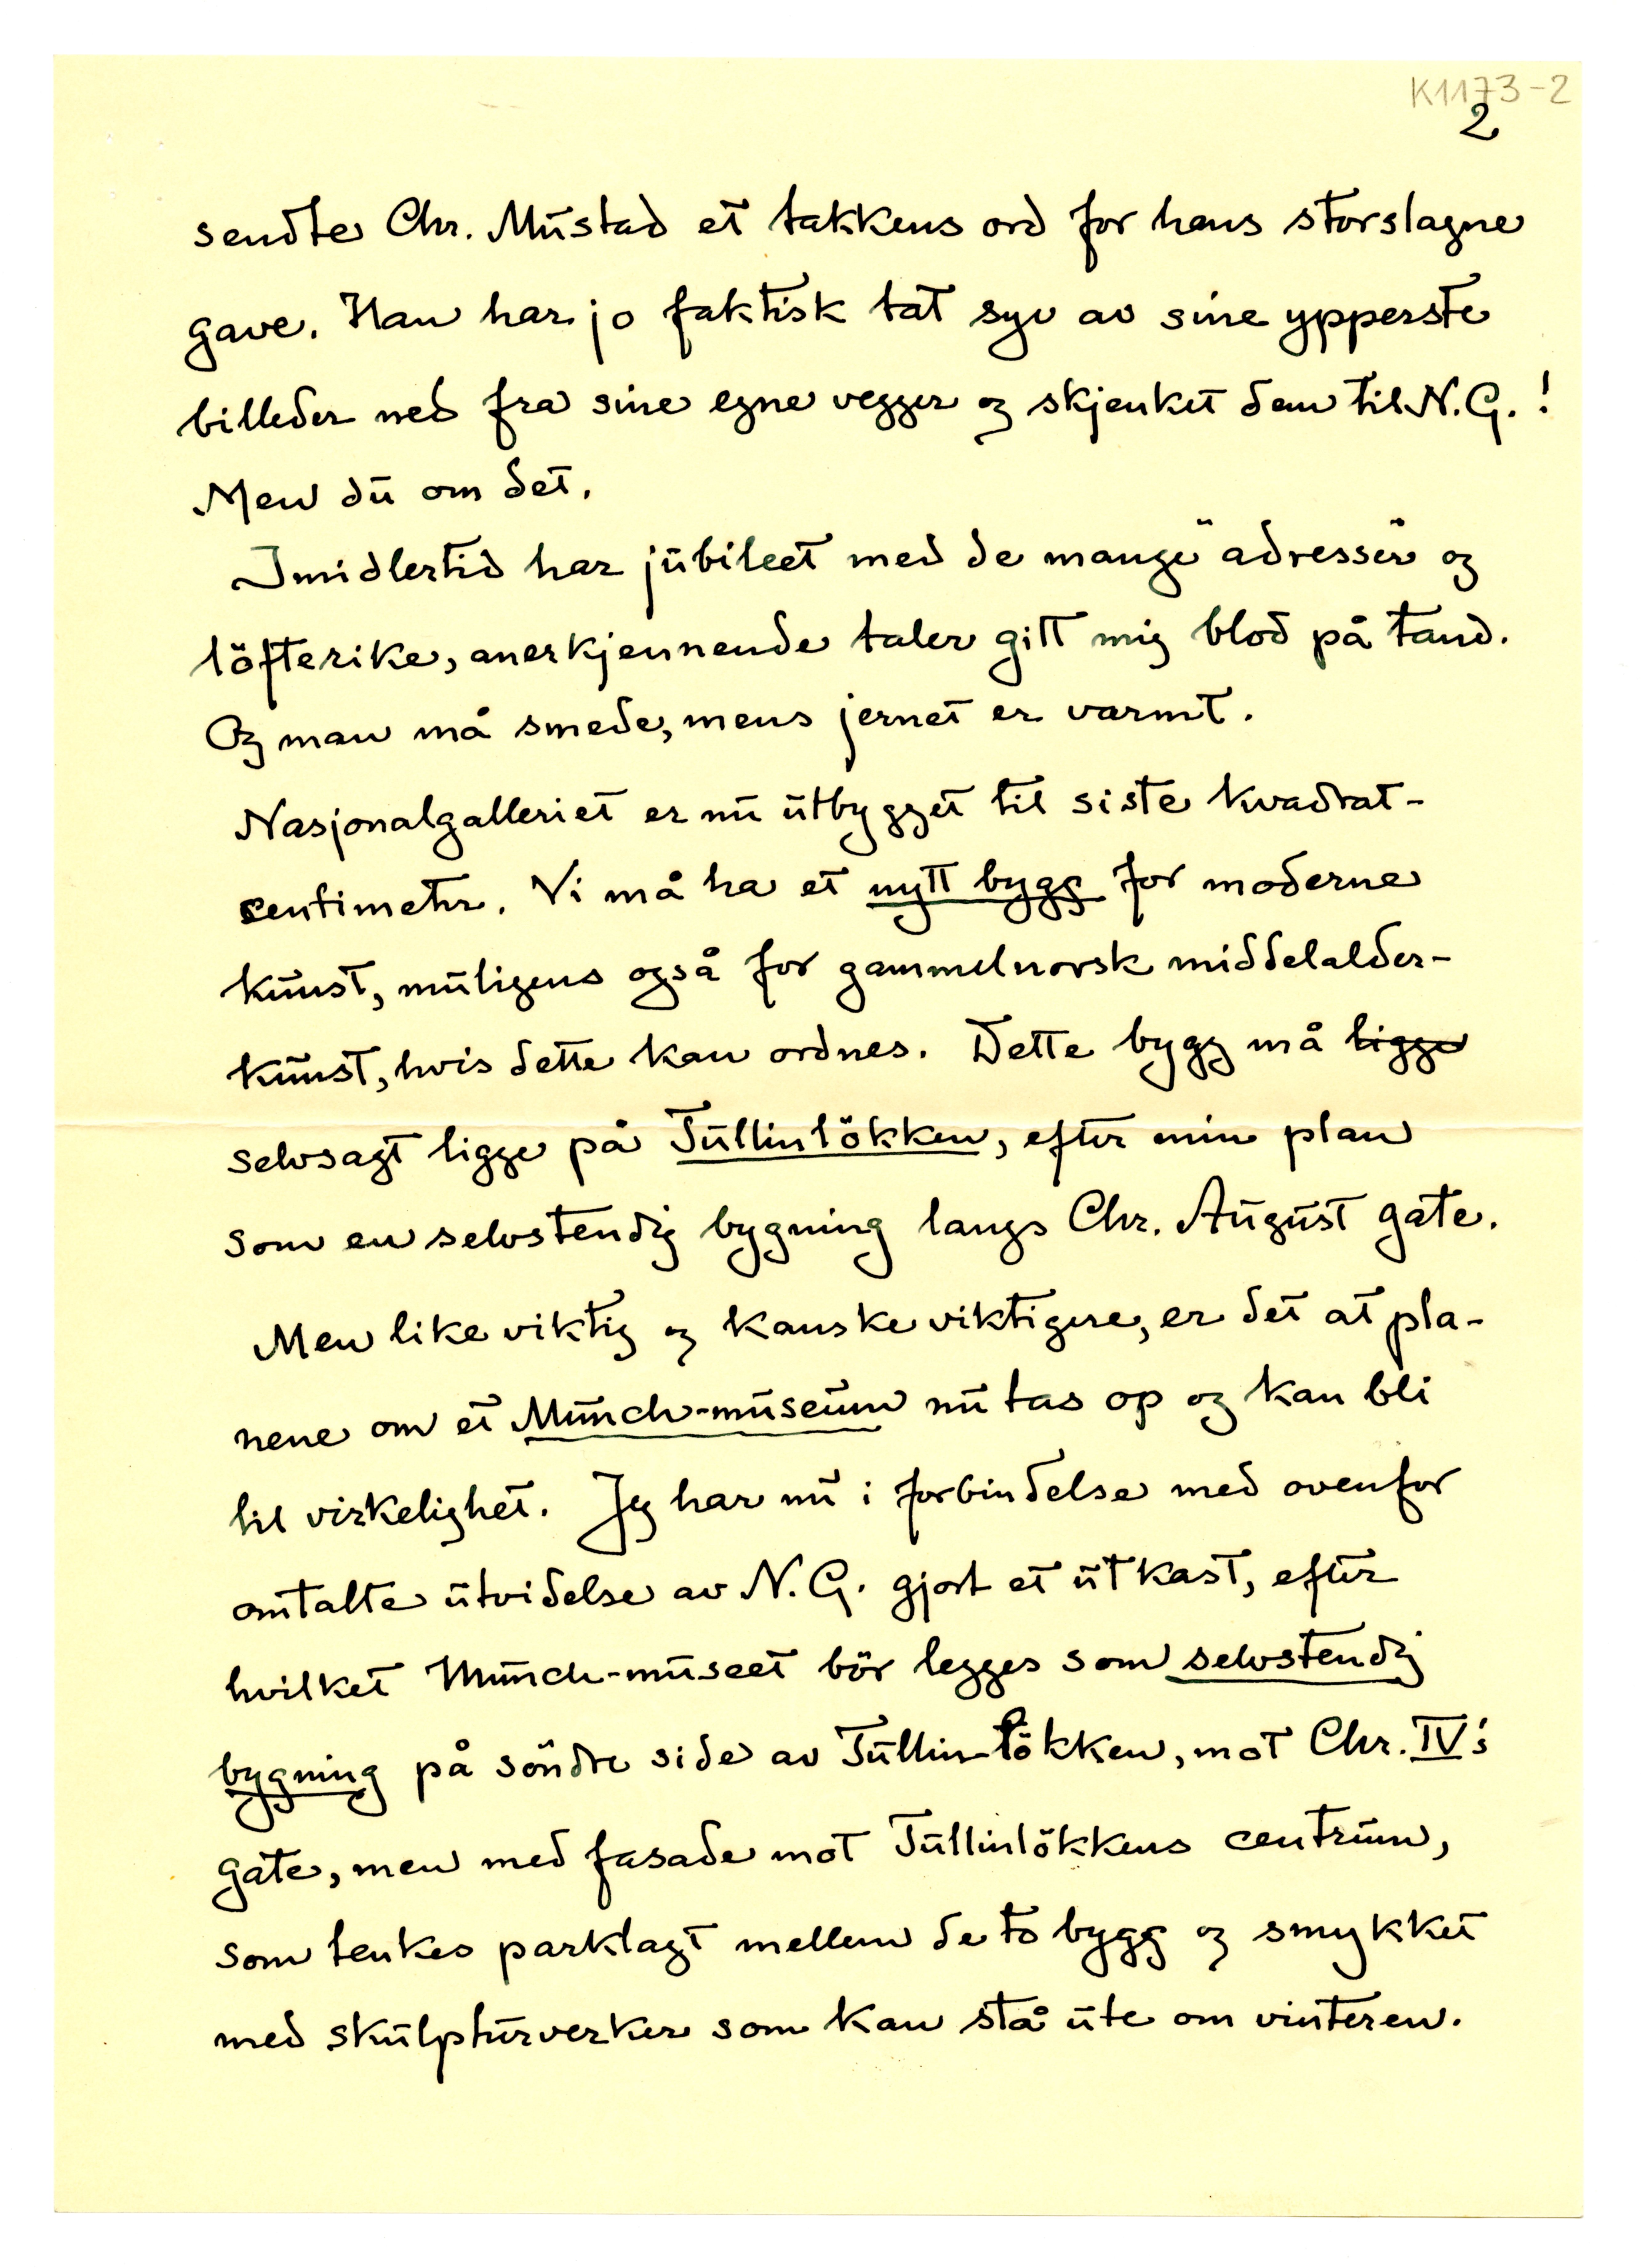 K1173-2
2
sendte Chr. Mustad et takkens ord for hans storslagne
gave. Han har jo faktisk tat syv av sine ypperste
billeder ned fra sine egne vegger og skjenket dem til N.G.!
Men du om det.
Imidlertid har jubileet med de mange "adresser" og
löfterike, anerkjennende taler gitt mig blod på tand.
Og man må smede, mens jernet er varmt.
Nasjonalgalleriet er nu utbygget til siste kvadrat-
centimeter. Vi må ha et nytt bygg for moderne
kunst, muligens også for gammelnorsk middelalder-
kunst, hvis dette kan ordnes. Dette bygg må ligge
selvsagt ligge på Tullinlökken, efter min plan
som en selvstendig bygning langs Chr. August gate.
Men like viktig og kanske viktigere, er det at pla-
nene om et Munch-museum nu tas op og kan bli
til virkelighet. Jeg har nu i forbindelse med ovenfor
omtalte utvidelse av N.G. gjort et utkast, efter
hvilket Munch-museet bör legges som selvstendig
bygning på söndre side av Tullin-lökken, mot Chr. IV's
gate, men med fasade mot Tullinlökkens centrum,
som tenkes parklagt mellem de to bygg og smykket
med skulpturverker som kan stå ute om vinteren.